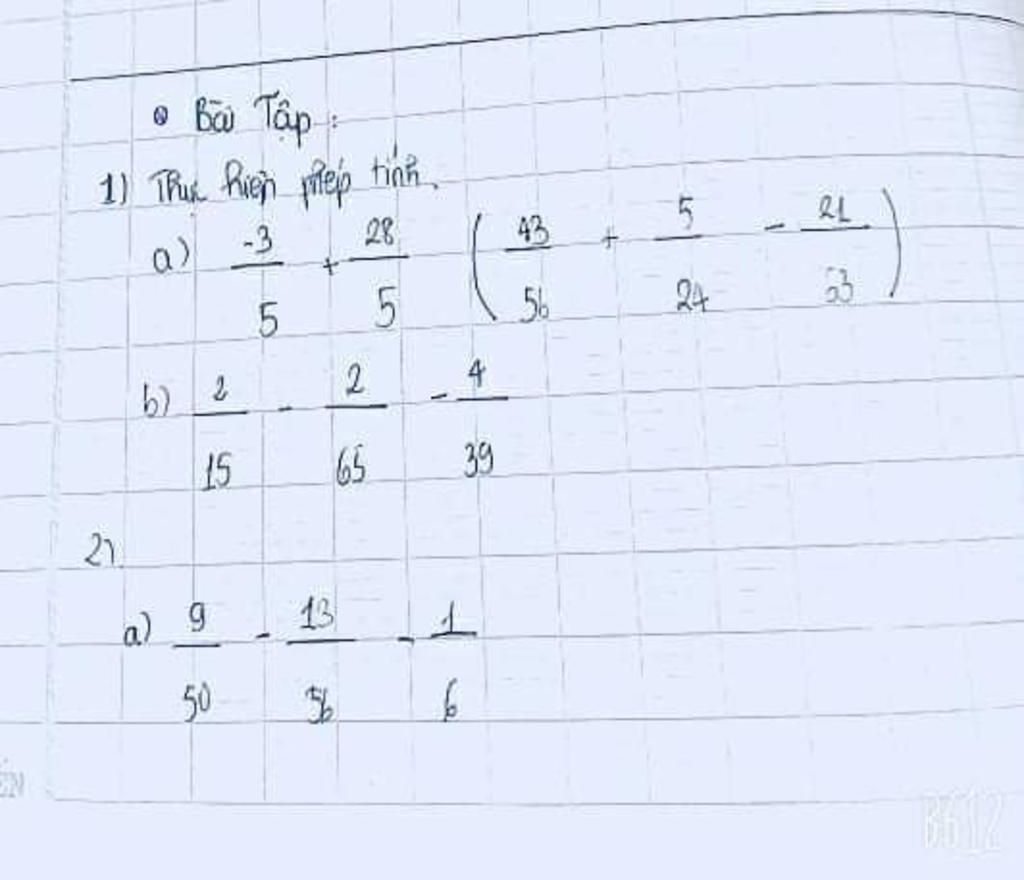 • Bài Tập :
1) Thực hiện phép tính.
a) -3/5 + 28/5 (43/56 + 5/24 - 21/63)
b) 2/15 - 2/65 - 4/39
2)
a) 9/50 - 13/56 - 1/6
B612